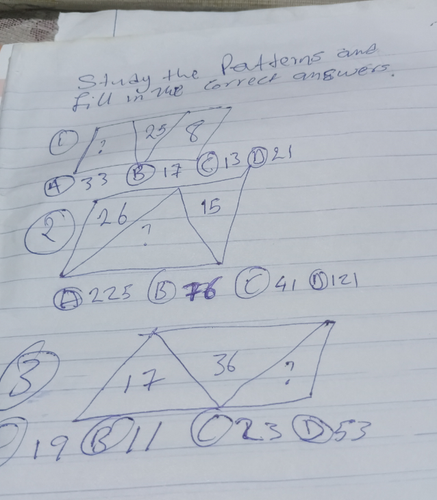 Study the Patterns and
fill in the correct answers.
1 ? 25 8
A 33 B 17 C 13 D 21
2 26 ? 15
A 225 B 76 C 41 D 121
3 17 36 ?
19 B 11 C 23 D 53